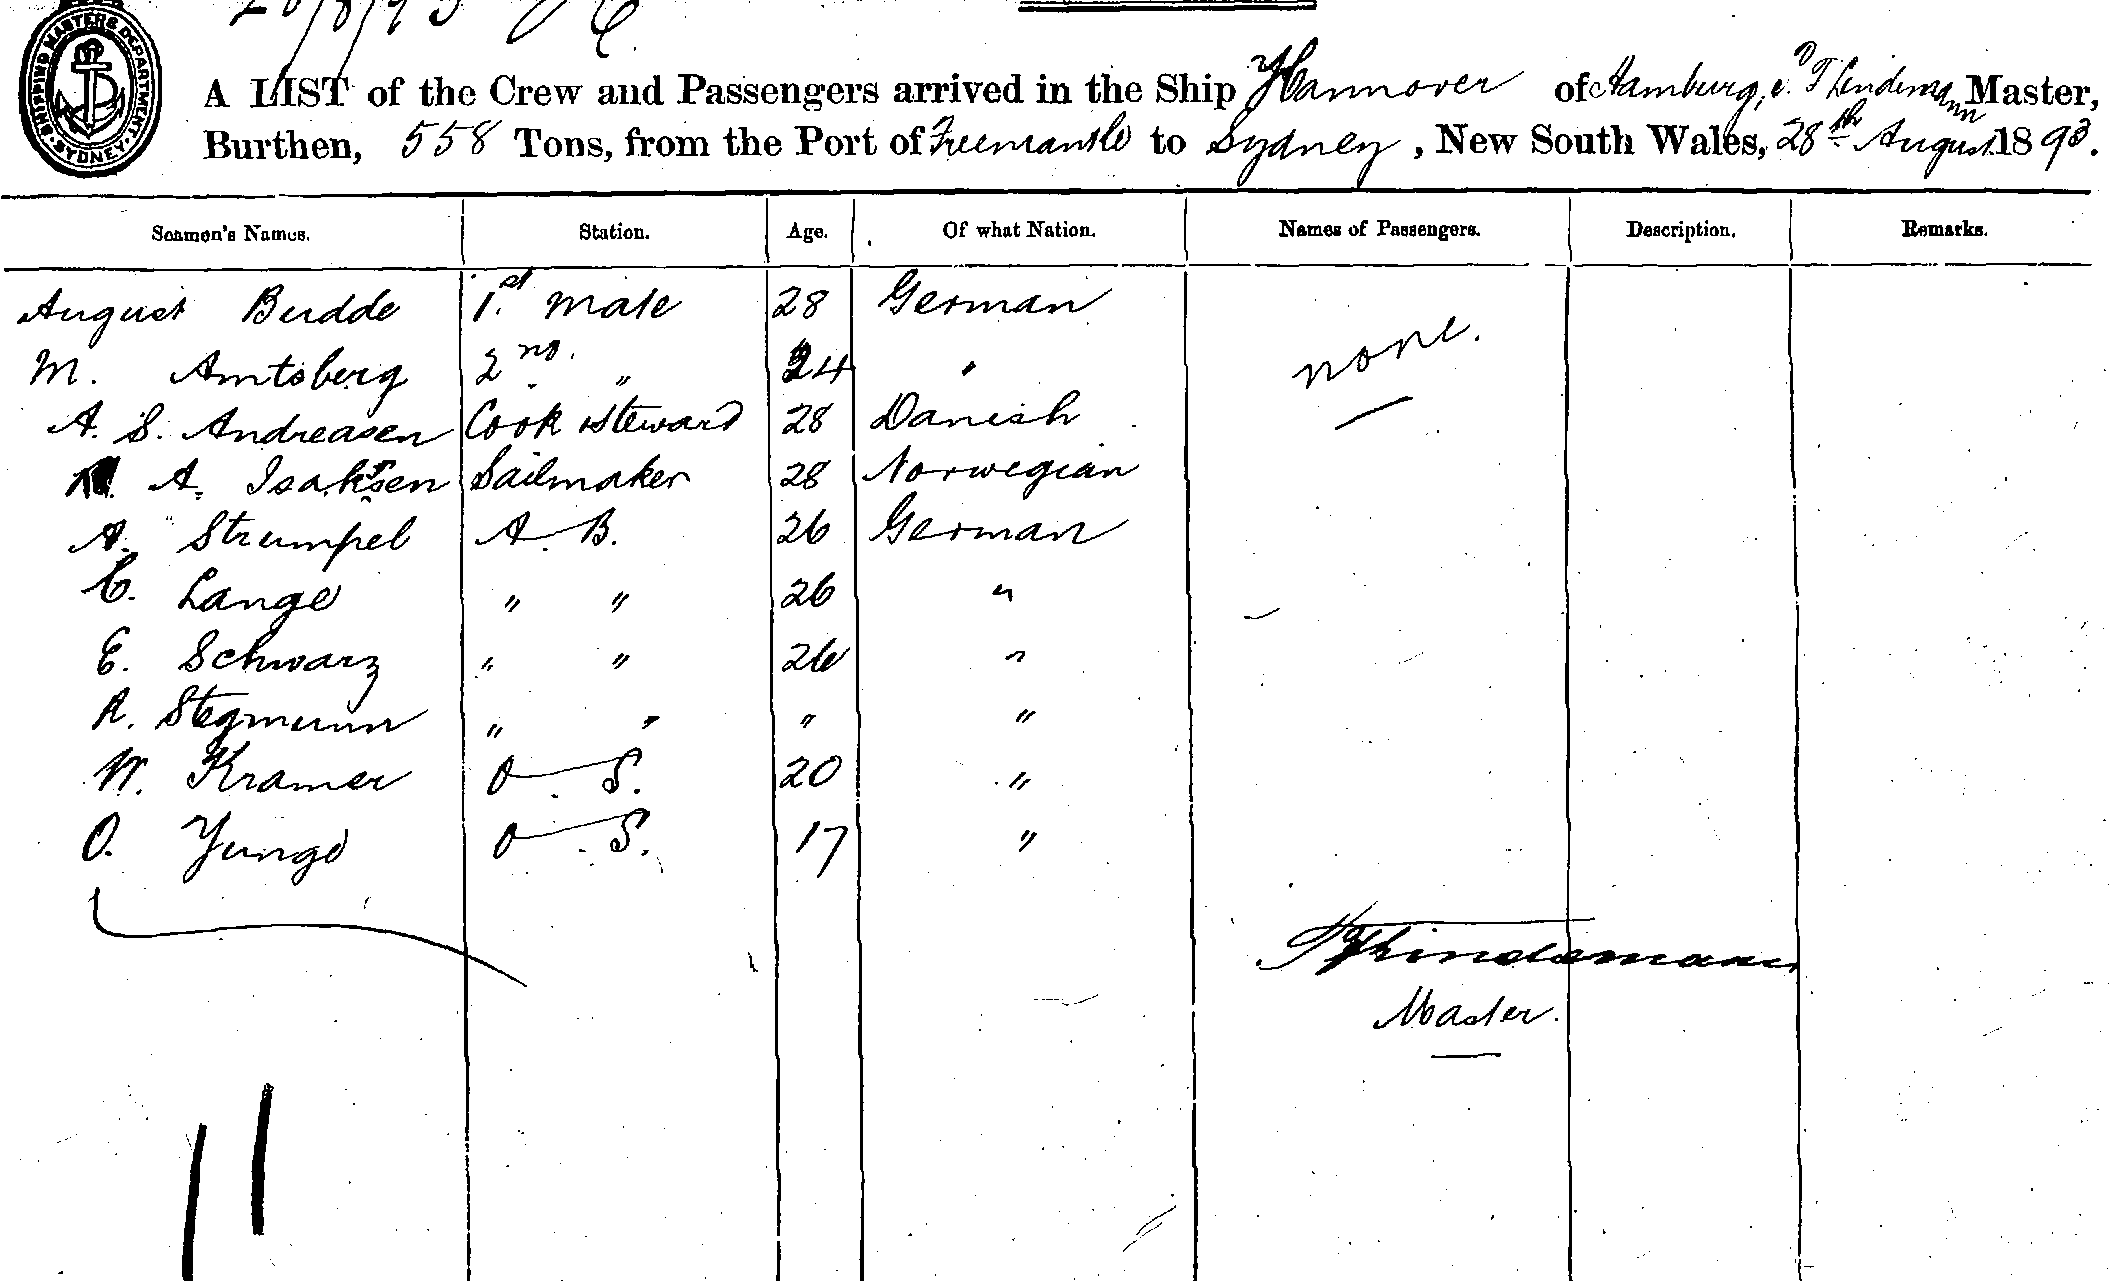 28/8/93
SHIPPING MASTERS DEPARTMENT SYDNEY
A LIST of the Crew and Passengers arrived in the Ship Hannover of Hamburg, Master,
Burthen, 558 Tons, from the Port of Freemantle to Sydney, New South Wales, 28th August 1893.
Seamen's Names. Station. Age. Of what Nation. Names of Passengers. Description. Remarks.
August Budde 1st Mate 28 German
none.
M. Amtsberg 2nd " 24 "
A. S. Andreasen Cook Steward 28 Danish
A. Isaksen Sailmaker 28 Norwegian
A. Strumpel A.B. 26 German
C. Lange " " 26 "
E. Schwarz " " 26 "
R. Stegmann " " " "
W. Kramer O.S. 20 "
O. Junge O.S. 17 "
Master.
11